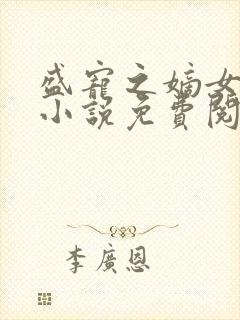 盛寵之嫡女
小說免費閱
李廣恩